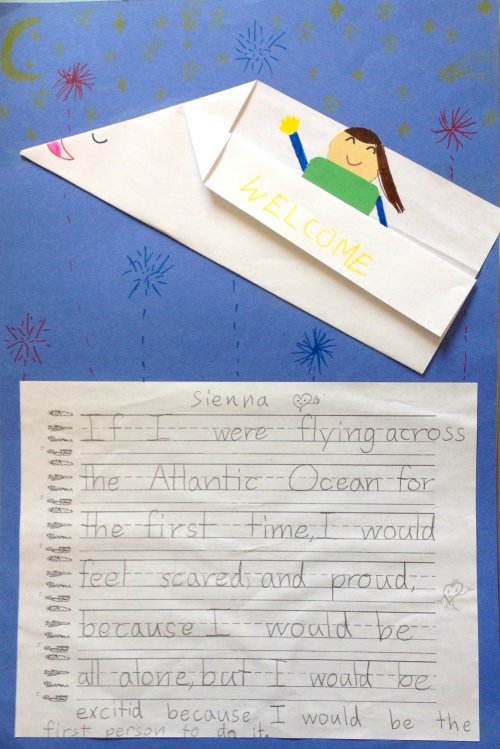 WELCOME
Sienna
If I were flying across
the Atlantic Ocean for
the first time, I would
feel scared, and proud,
because I would be
all alone, but I would be
excitid because I would be the
first person to do it.